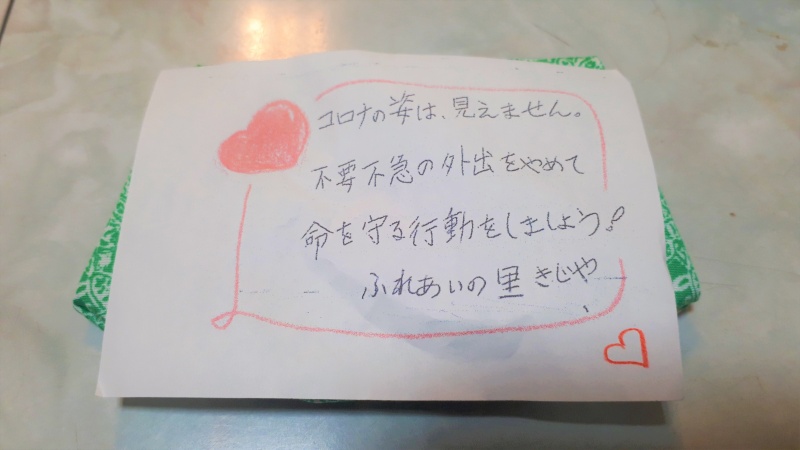 コロナの姿は、見えません。
不要不急の外出をやめて
命を守る行動をしましょう!
ふれあいの里きじや